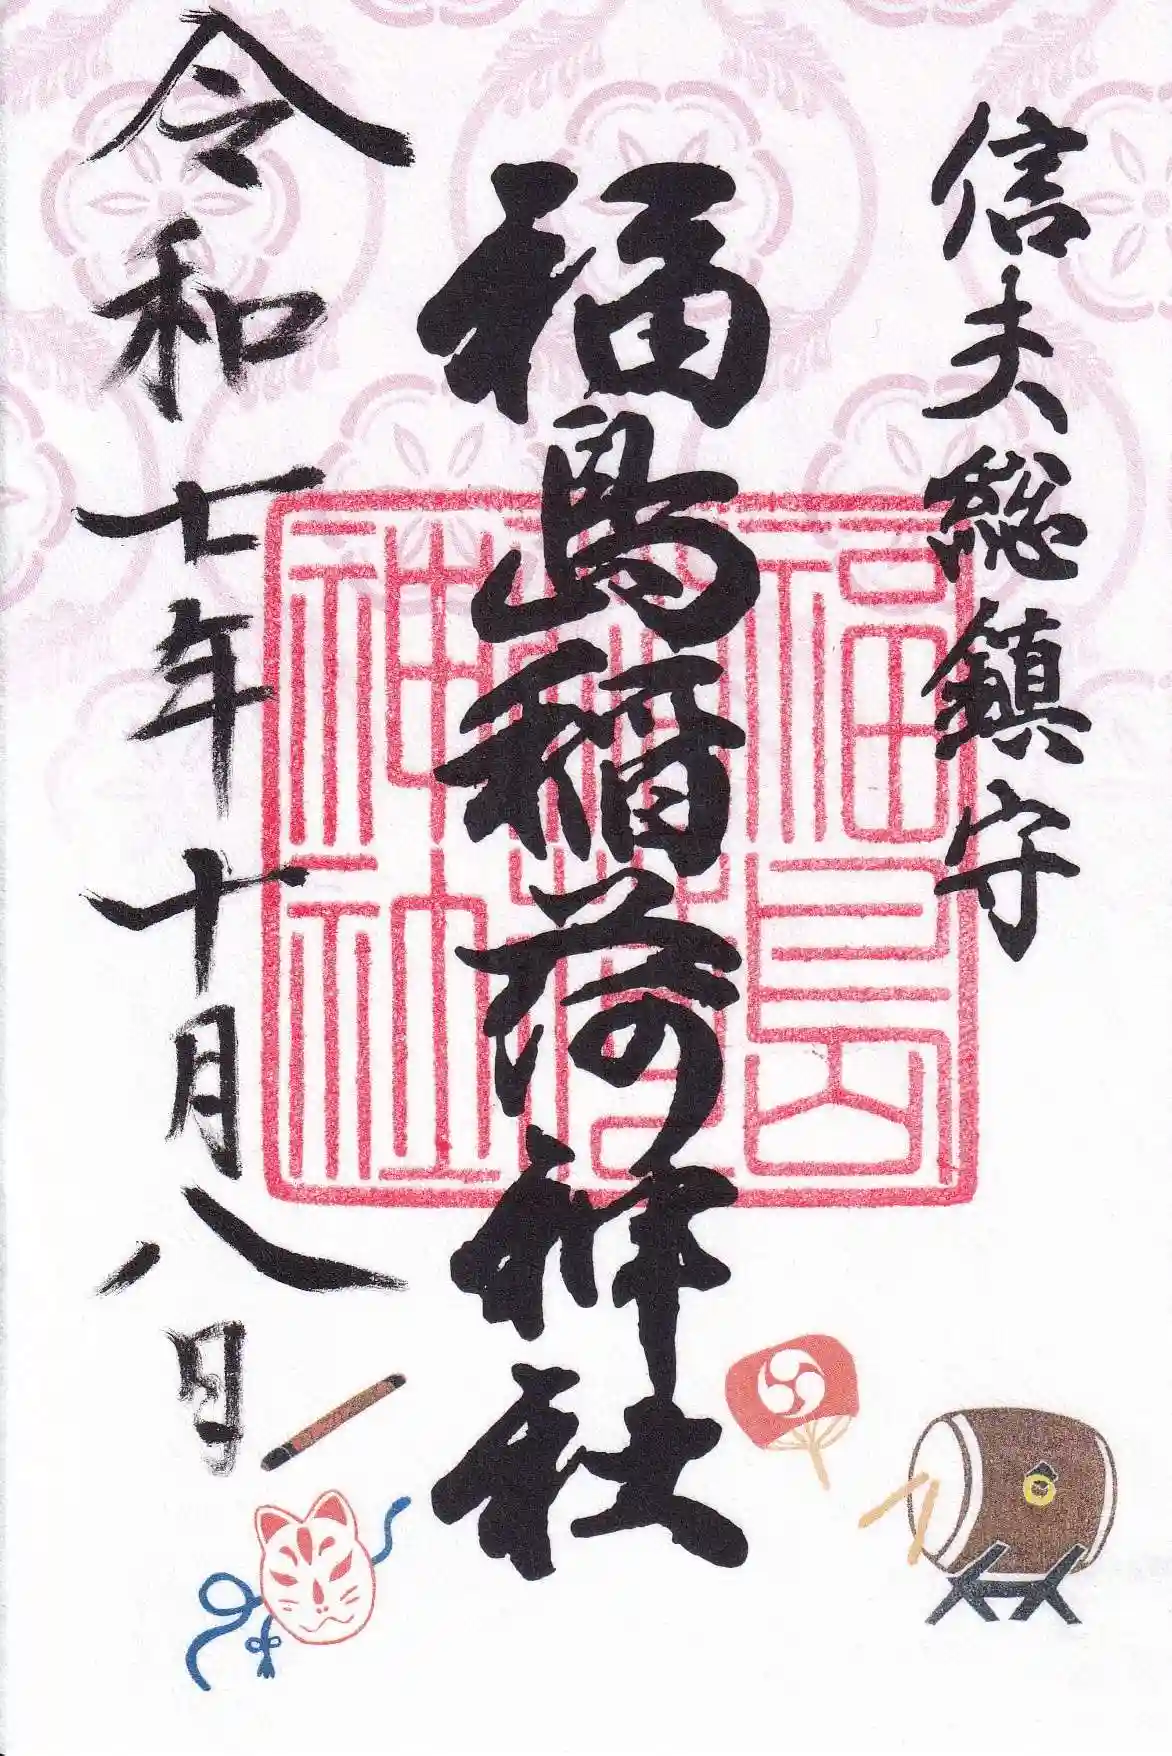 信夫総鎮守
福島稲荷神社
福島稲荷神社
令和七年十月八日